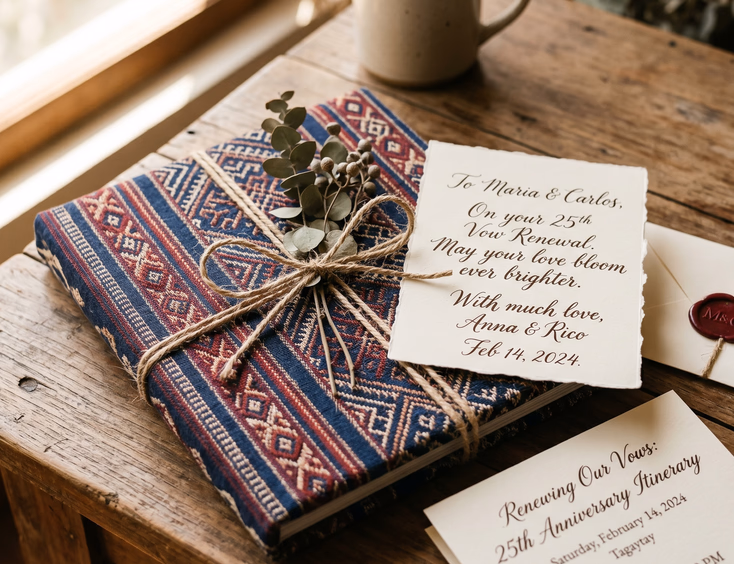 To Maria & Carlos,
On your 25th
Vow Renewal.
May your love bloom
ever brighter.
With much love,
Anna & Rico
Feb 14, 2024.
Renewing Our Vows:
25th Anniversary Itinerary
Saturday, February 14, 2024
Tagaytay